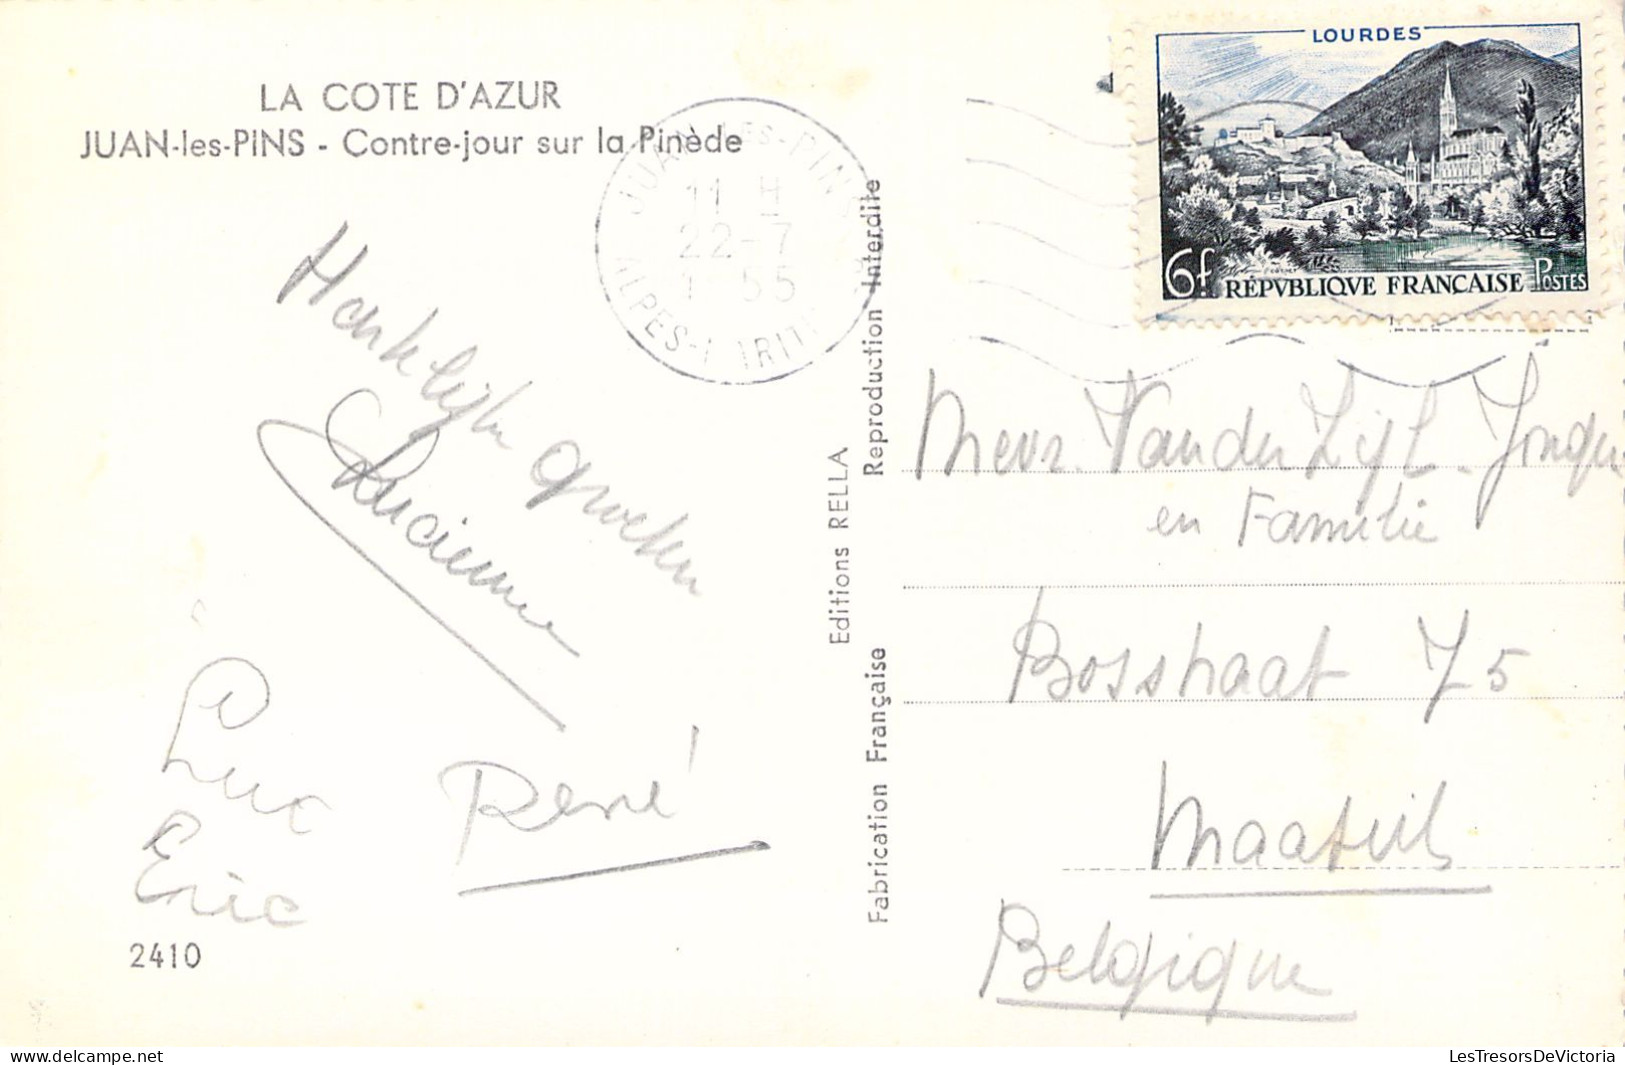 LA COTE D'AZUR
JUAN-les-PINS - Contre-jour sur la Pinède
JUAN-LES-PINS
11 H
22-7
1 55
ALPES-
LOURDES
6f REPVBLIQVE FRANÇAISE POSTES
Hartelijke groeten
Lucienne
Luc
René
Eric
2410
Editions RELLA
Fabrication Française
Reproduction Interdite
Mevr. Van der Zijl -
en Familie
Bosstraat 75
Belgique
LesTresorsDeVictoria